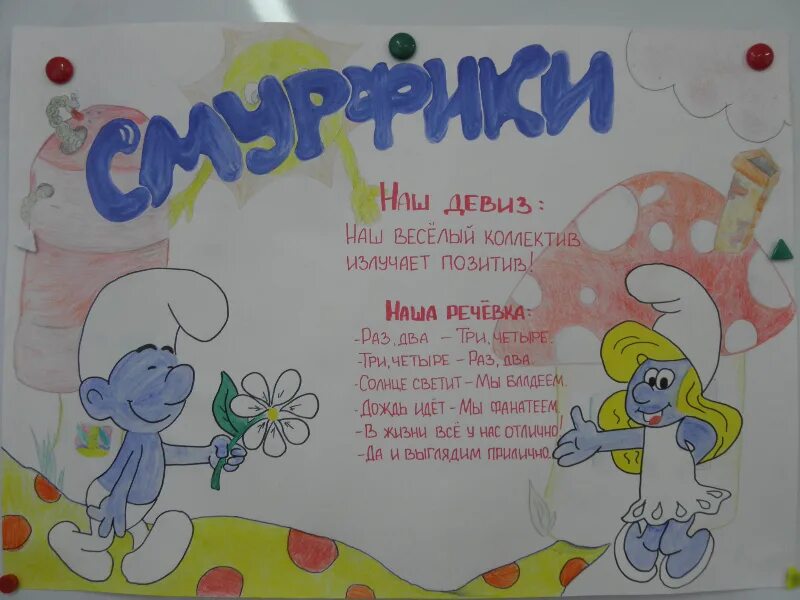 СМУРФИКИ
НАШ ДЕВИЗ:
НАШ ВЕСЁЛЫЙ КОЛЛЕКТИВ
ИЗЛУЧАЕТ ПОЗИТИВ!
НАША РЕЧЁВКА:
-РАЗ, ДВА – ТРИ, ЧЕТЫРЕ.
-ТРИ, ЧЕТЫРЕ – РАЗ, ДВА.
-СОЛНЦЕ СВЕТИТ – МЫ БАЛДЕЕМ.
-ДОЖДЬ ИДЁТ – МЫ ФАНАТЕЕМ.
-В ЖИЗНИ ВСЁ У НАС ОТЛИЧНО!
-ДА И ВЫГЛЯДИМ ПРИЛИЧНО.